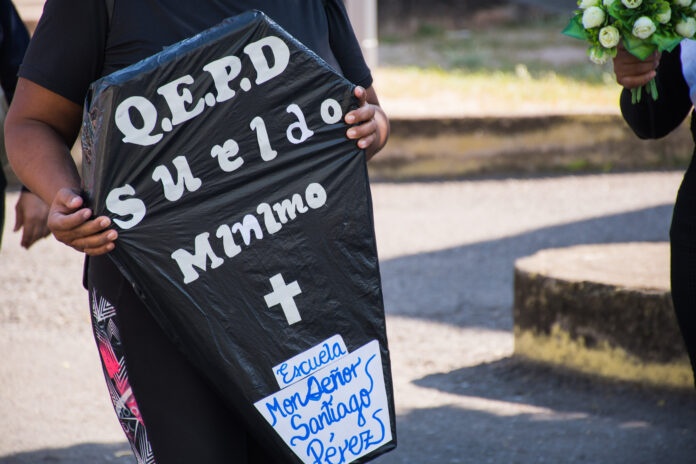 Q.E.P.D
Sueldo
Minimo
Escuela
Monseñor
Santiago
Pérez